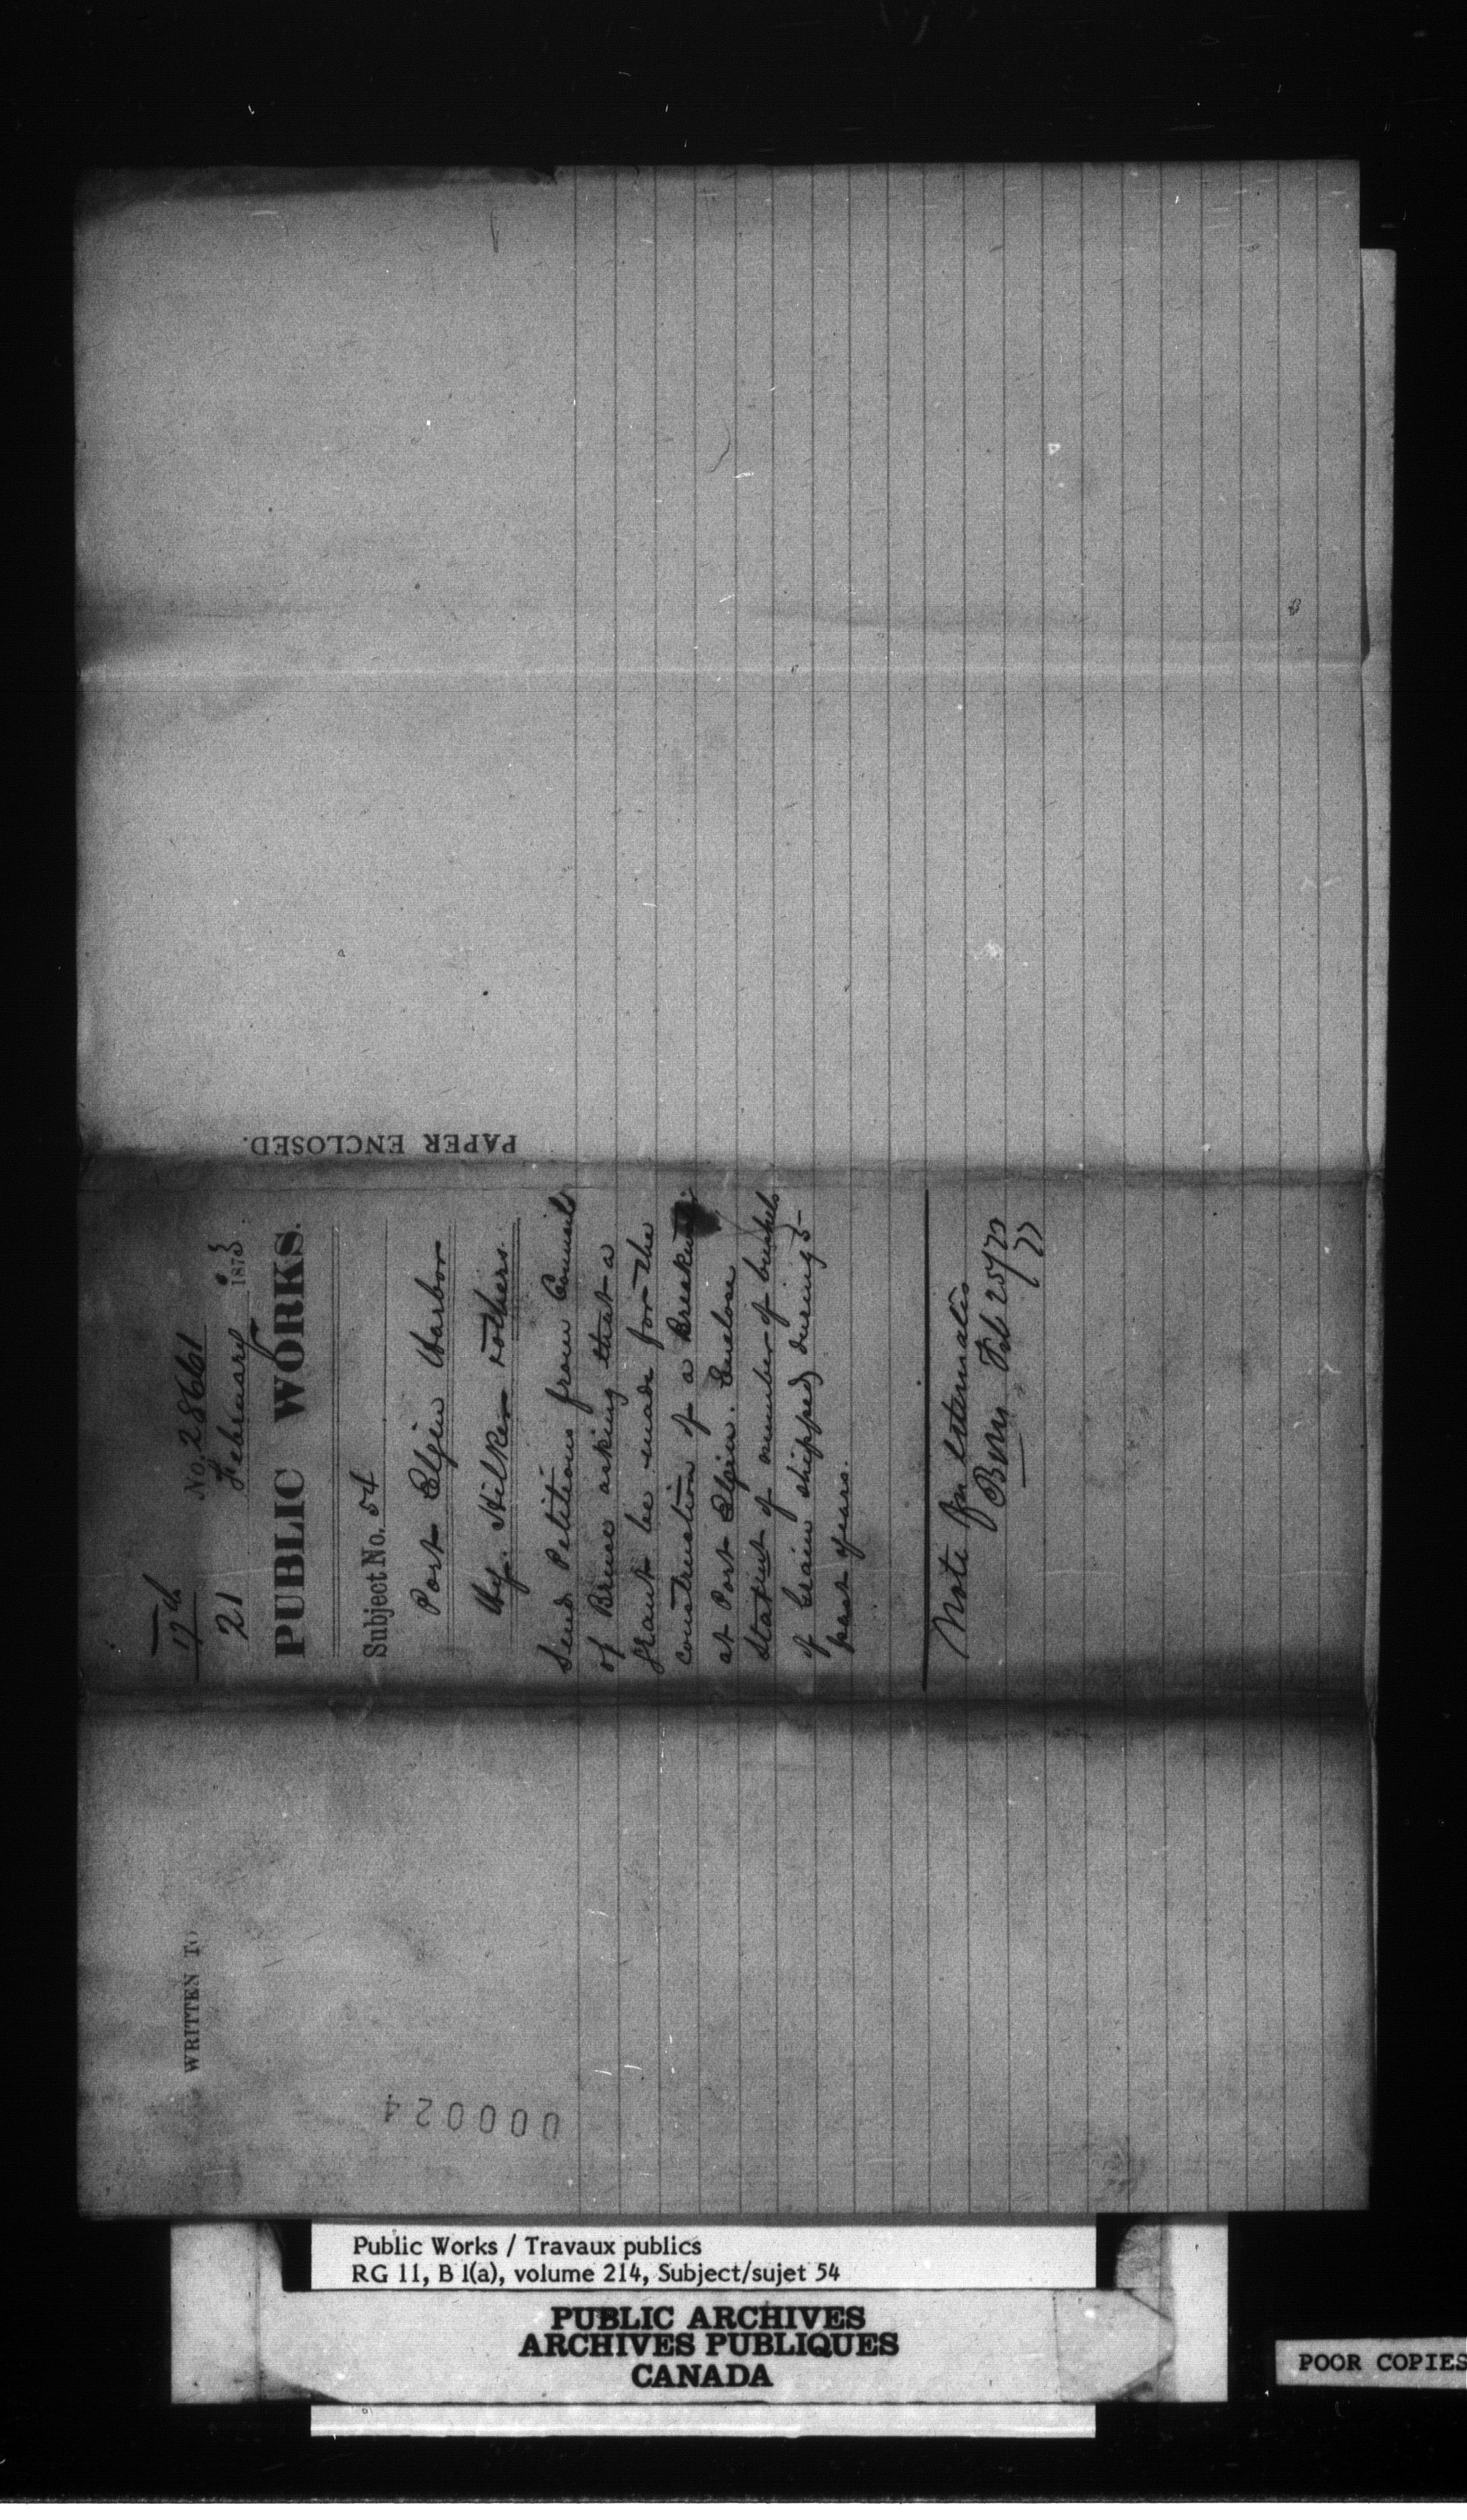 17th
No. 28661
21 February 1873
PUBLIC WORKS.
Subject No. 54
Port Elgin Harbor
Hy. Hilker & others.
Send Petitions from Council
of Bruce asking that a
grant be made for the
construction of a Breakwater
at Port Elgin. Enclose
Statement of number of bushels
of Grain shipped during 5
past years.
Note for estimates
Feb 25/73
PAPER ENCLOSED.
WRITTEN TO
000024
Public Works / Travaux publics
RG 11, B 1(a), volume 214, Subject/sujet 54
PUBLIC ARCHIVES
ARCHIVES PUBLIQUES
CANADA
POOR COPIES